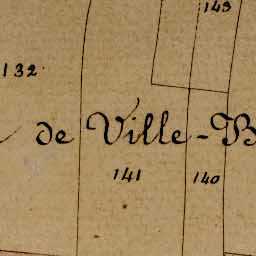 143
132
de Ville-B
141 140